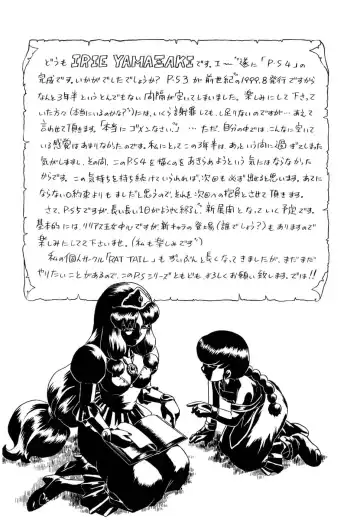 どうも IRIE YAMAZAKI です。エ〜遂に「P・S4」の
完成です。いかがでしたでしょうか? P・S3が前世紀の1999.8発行ですから
なんと3年半というとんでもない間隔が空いてしまいました。楽しみにして下さって
いた方々(本当にいるのかな?)には、いくら謝罪しても、し足りないのですが…あえて
言わせて頂きます。「本当にゴメンなさい。」… ただ、自分の中では、こんなに空いて
いる感覚はあまりなかったのです。私にとってこの3年半は、あっという間に過ぎてしまった
気がしますし、その間、このP・S4を描くのをあきらめようという気にはならなかった
からです。この気持ちを持ち続けていられれば、次回も必ず出せると思います。あてに
ならない口約束よりもましだと思うので、それを次回への抱負とさせて頂きます。
さて、P・S5ですが、長い長い1日がようやく終了し、新展開となっていく予定です。
基本的には、リリア女王を中心ですが新キャラの登場(誰でしょう?)もありますので
楽しみにしてて下さいませ。(私も楽しみです)
私の個人サークル「RAT TAIL」も、ずいぶんと長くなってきましたが、まだまだ
やりたいことがあるので、このP・Sシリーズともども、よろしくお願い致します。では!!